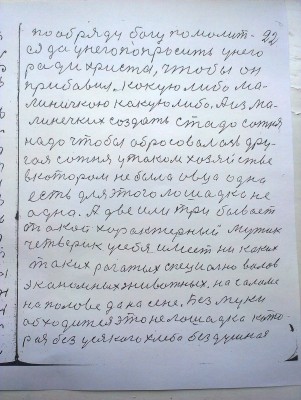 22
пообряду богу помолит-
ся да унегопопросить унего
ради христа, чтобы он
прибавил, какую либо ма-
линичкою какую либо. А из ма-
линегких создать стадо сотня
надо чтобы обросовалась дру-
гая сотня утаком хозяйстве
вкотором не была овца одна
есть для этого лошадка не
одна. А две или три бывает
такой характерный мужик
четверик усебя имеет ни каких
таких рагатых специально валов
эканомных животных, на саламе
на полове да на сене. Без муки
обходится это не лошадка кото
рая без усякого хлеба бездушная